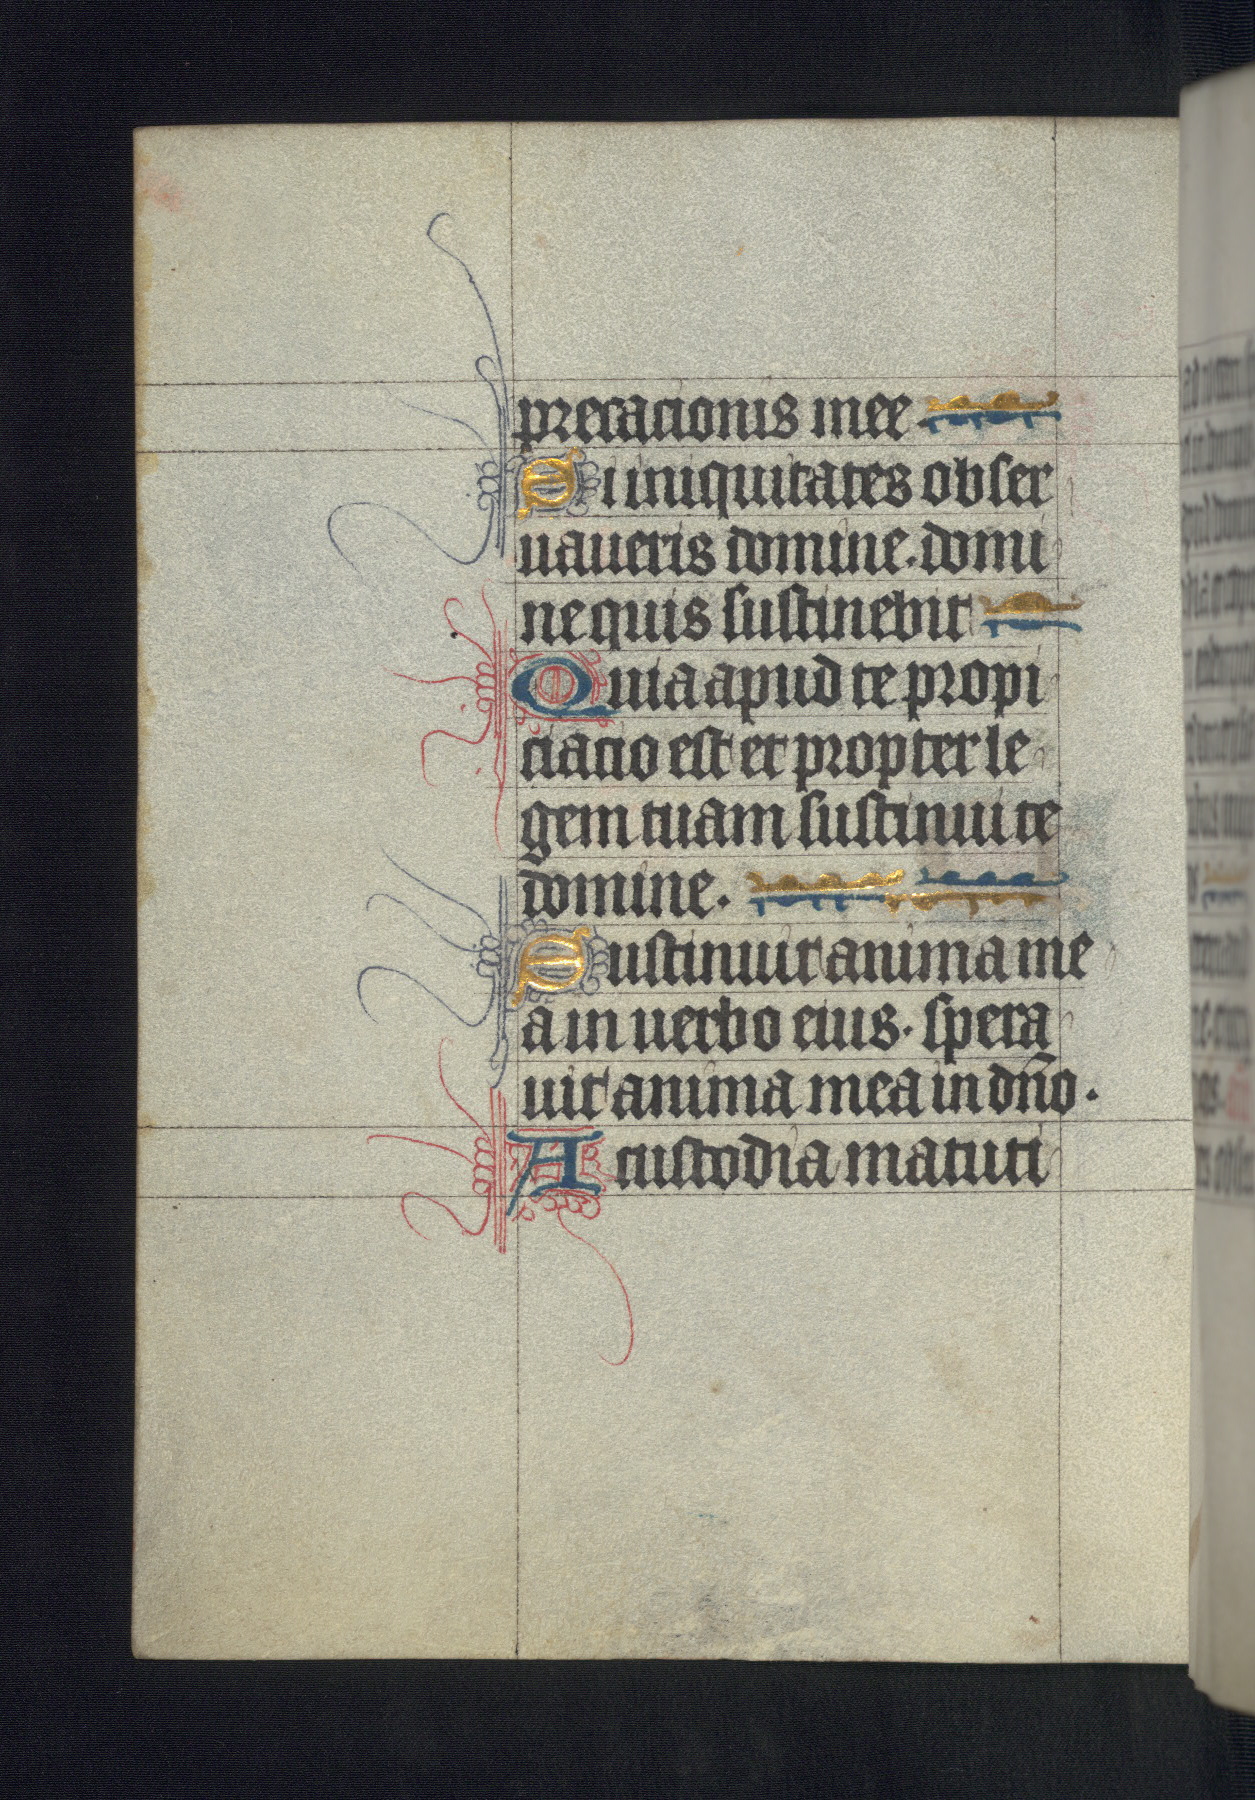 precacionis mee
Si iniquitates obser
uaueris domine. domi
ne quis sustinebit
Quia apud te propi
ciacio est et propter le
gem tuam sustinui te
domine.
Sustinuit anima me
a in uerbo eius. spera
uit anima mea in dño.
A custodia matuti